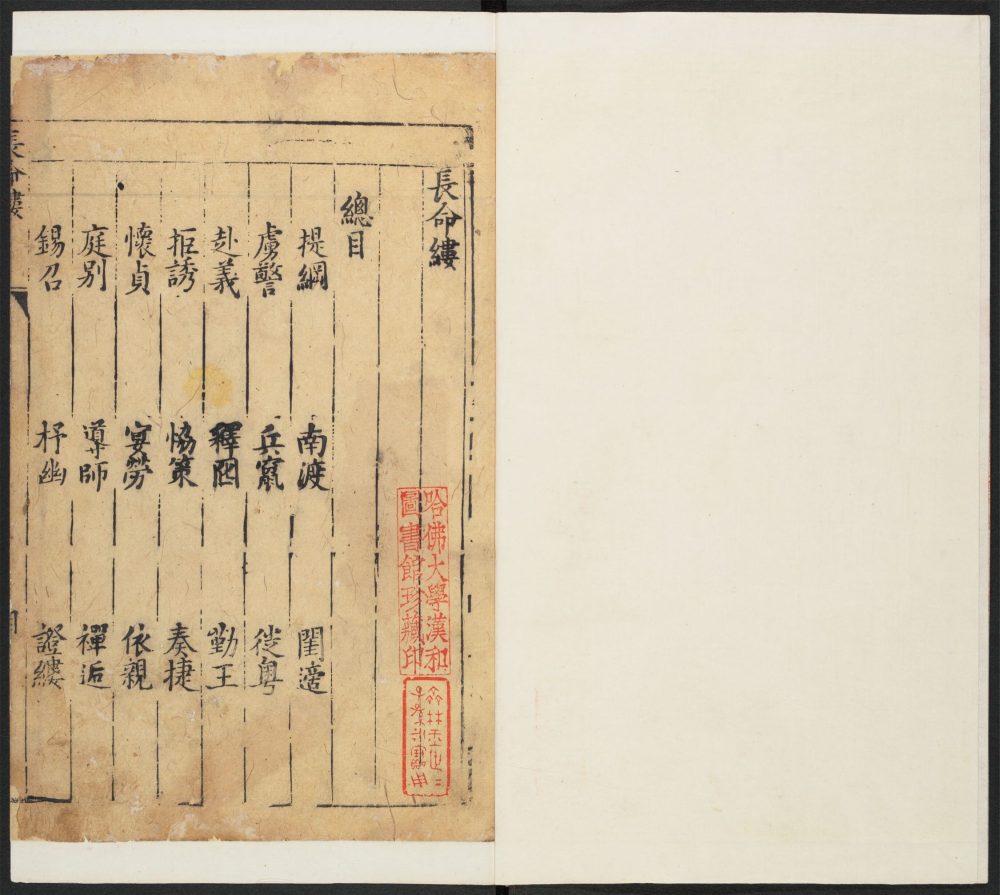 長命縷
總目
提綱 南渡 閨謔
虜警 兵竄 徙粤
赴義 釋囚 勤王
拒誘 協策 奏捷
懷貞 宴勞 依親
庭別 導師 禪逅
錫召 杼幽 證縷
長命縷
哈佛大學漢和
圖書館珍藏印